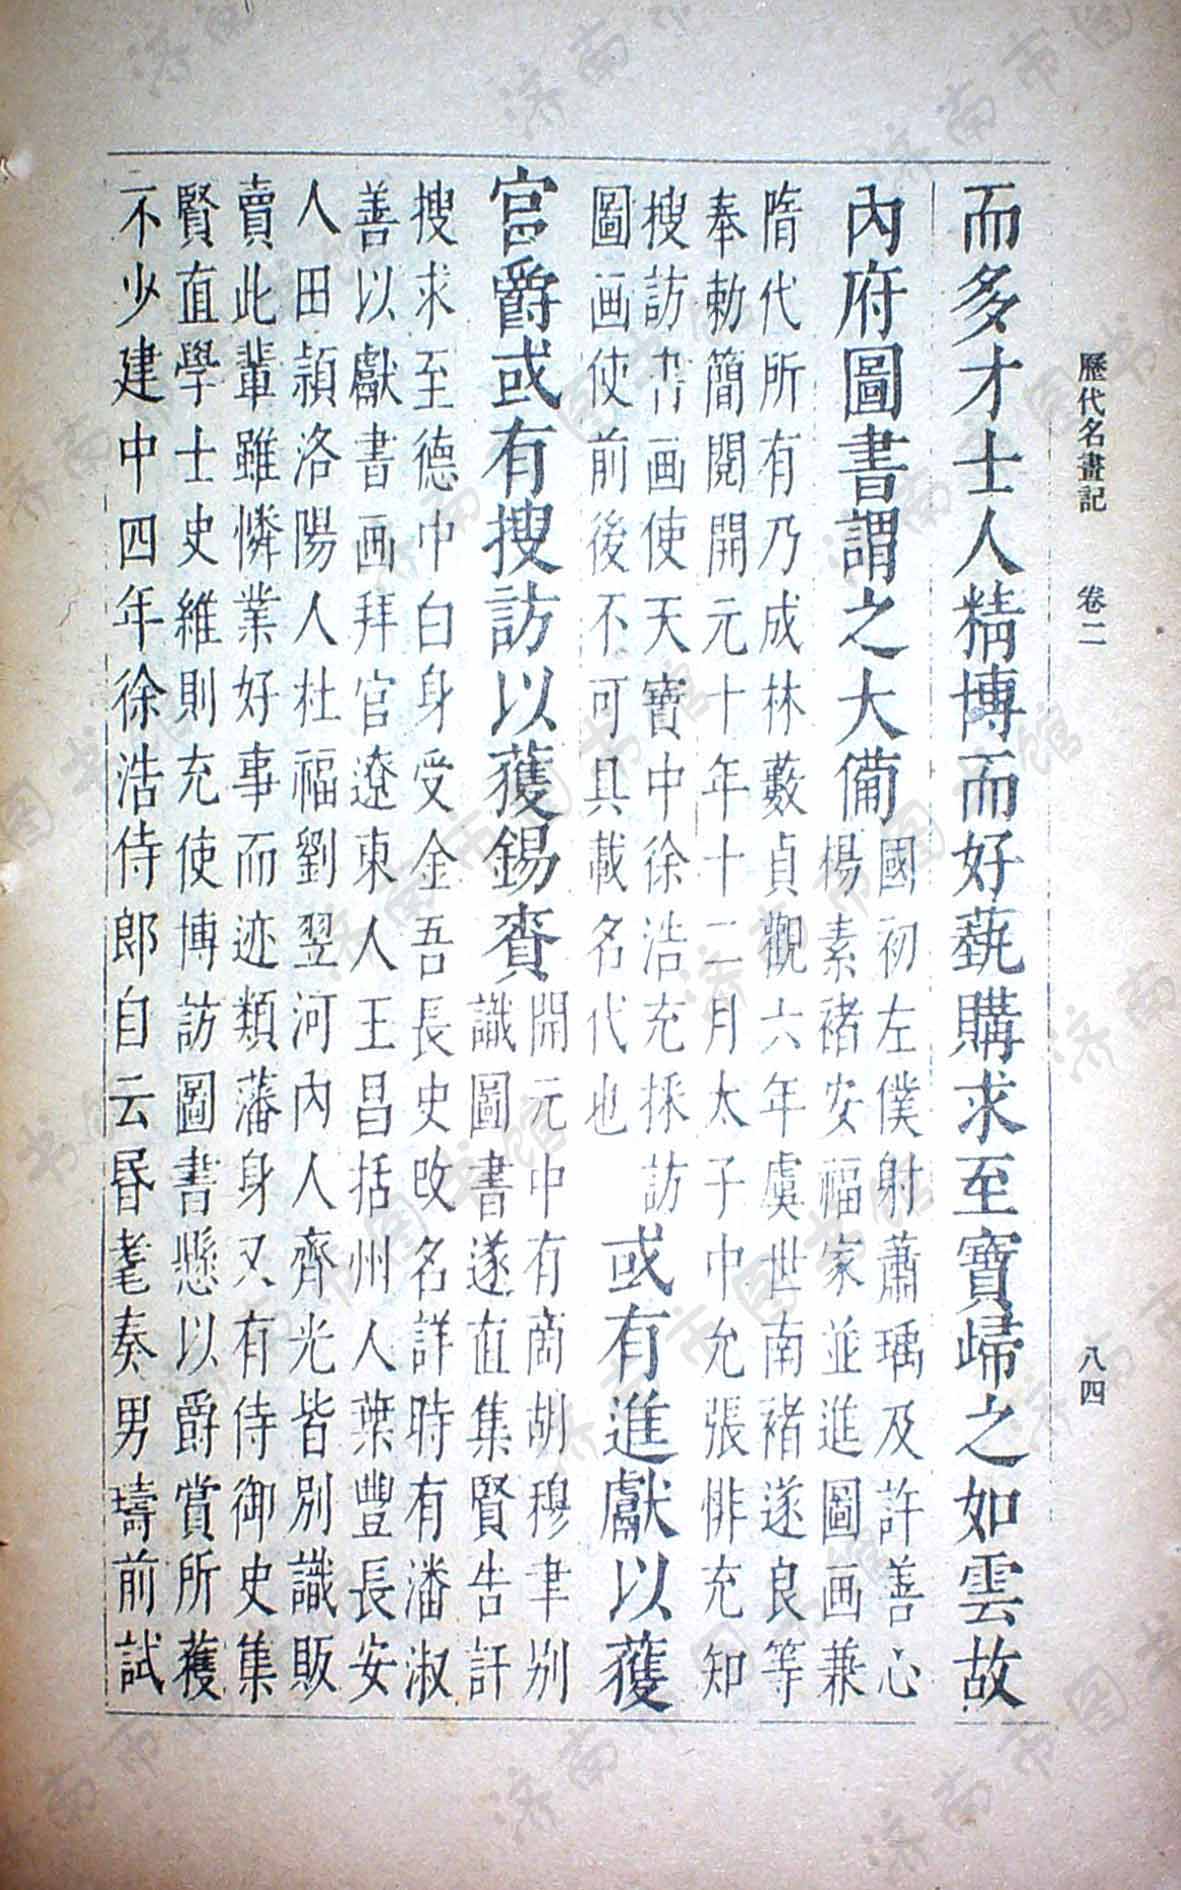 歷代名畫記 卷二 八四
而多才士人精博而好藝購求至寶歸之如雲故
內府圖書謂之大備
國初左僕射蕭瑀及許善心
楊素褚安福家並進圖画兼
隋代所有乃成林藪貞觀六年虞世南褚遂良等
奉勅簡閱開元十年十二月太子中允張悱充知
搜訪書画使天寶中徐浩充採訪
圖画使前後不可具載名代也
或有進獻以獲
官爵或有搜訪以獲錫賚
開元中有商胡穆聿别
識圖書遂直集賢告訐
搜求至德中白身受金吾長史改名詳時有潘淑
善以獻書画拜官遼東人王昌括州人葉豐長安
人田潁洛陽人杜福劉翌河內人齊光皆別識販
賣此輩雖憐業好事而迹類藩身又有侍御史集
賢直學士史維則充使博訪圖書懸以爵賞所獲
不少建中四年徐浩侍郎自云昏耄奏男璹前試
济南市图书馆